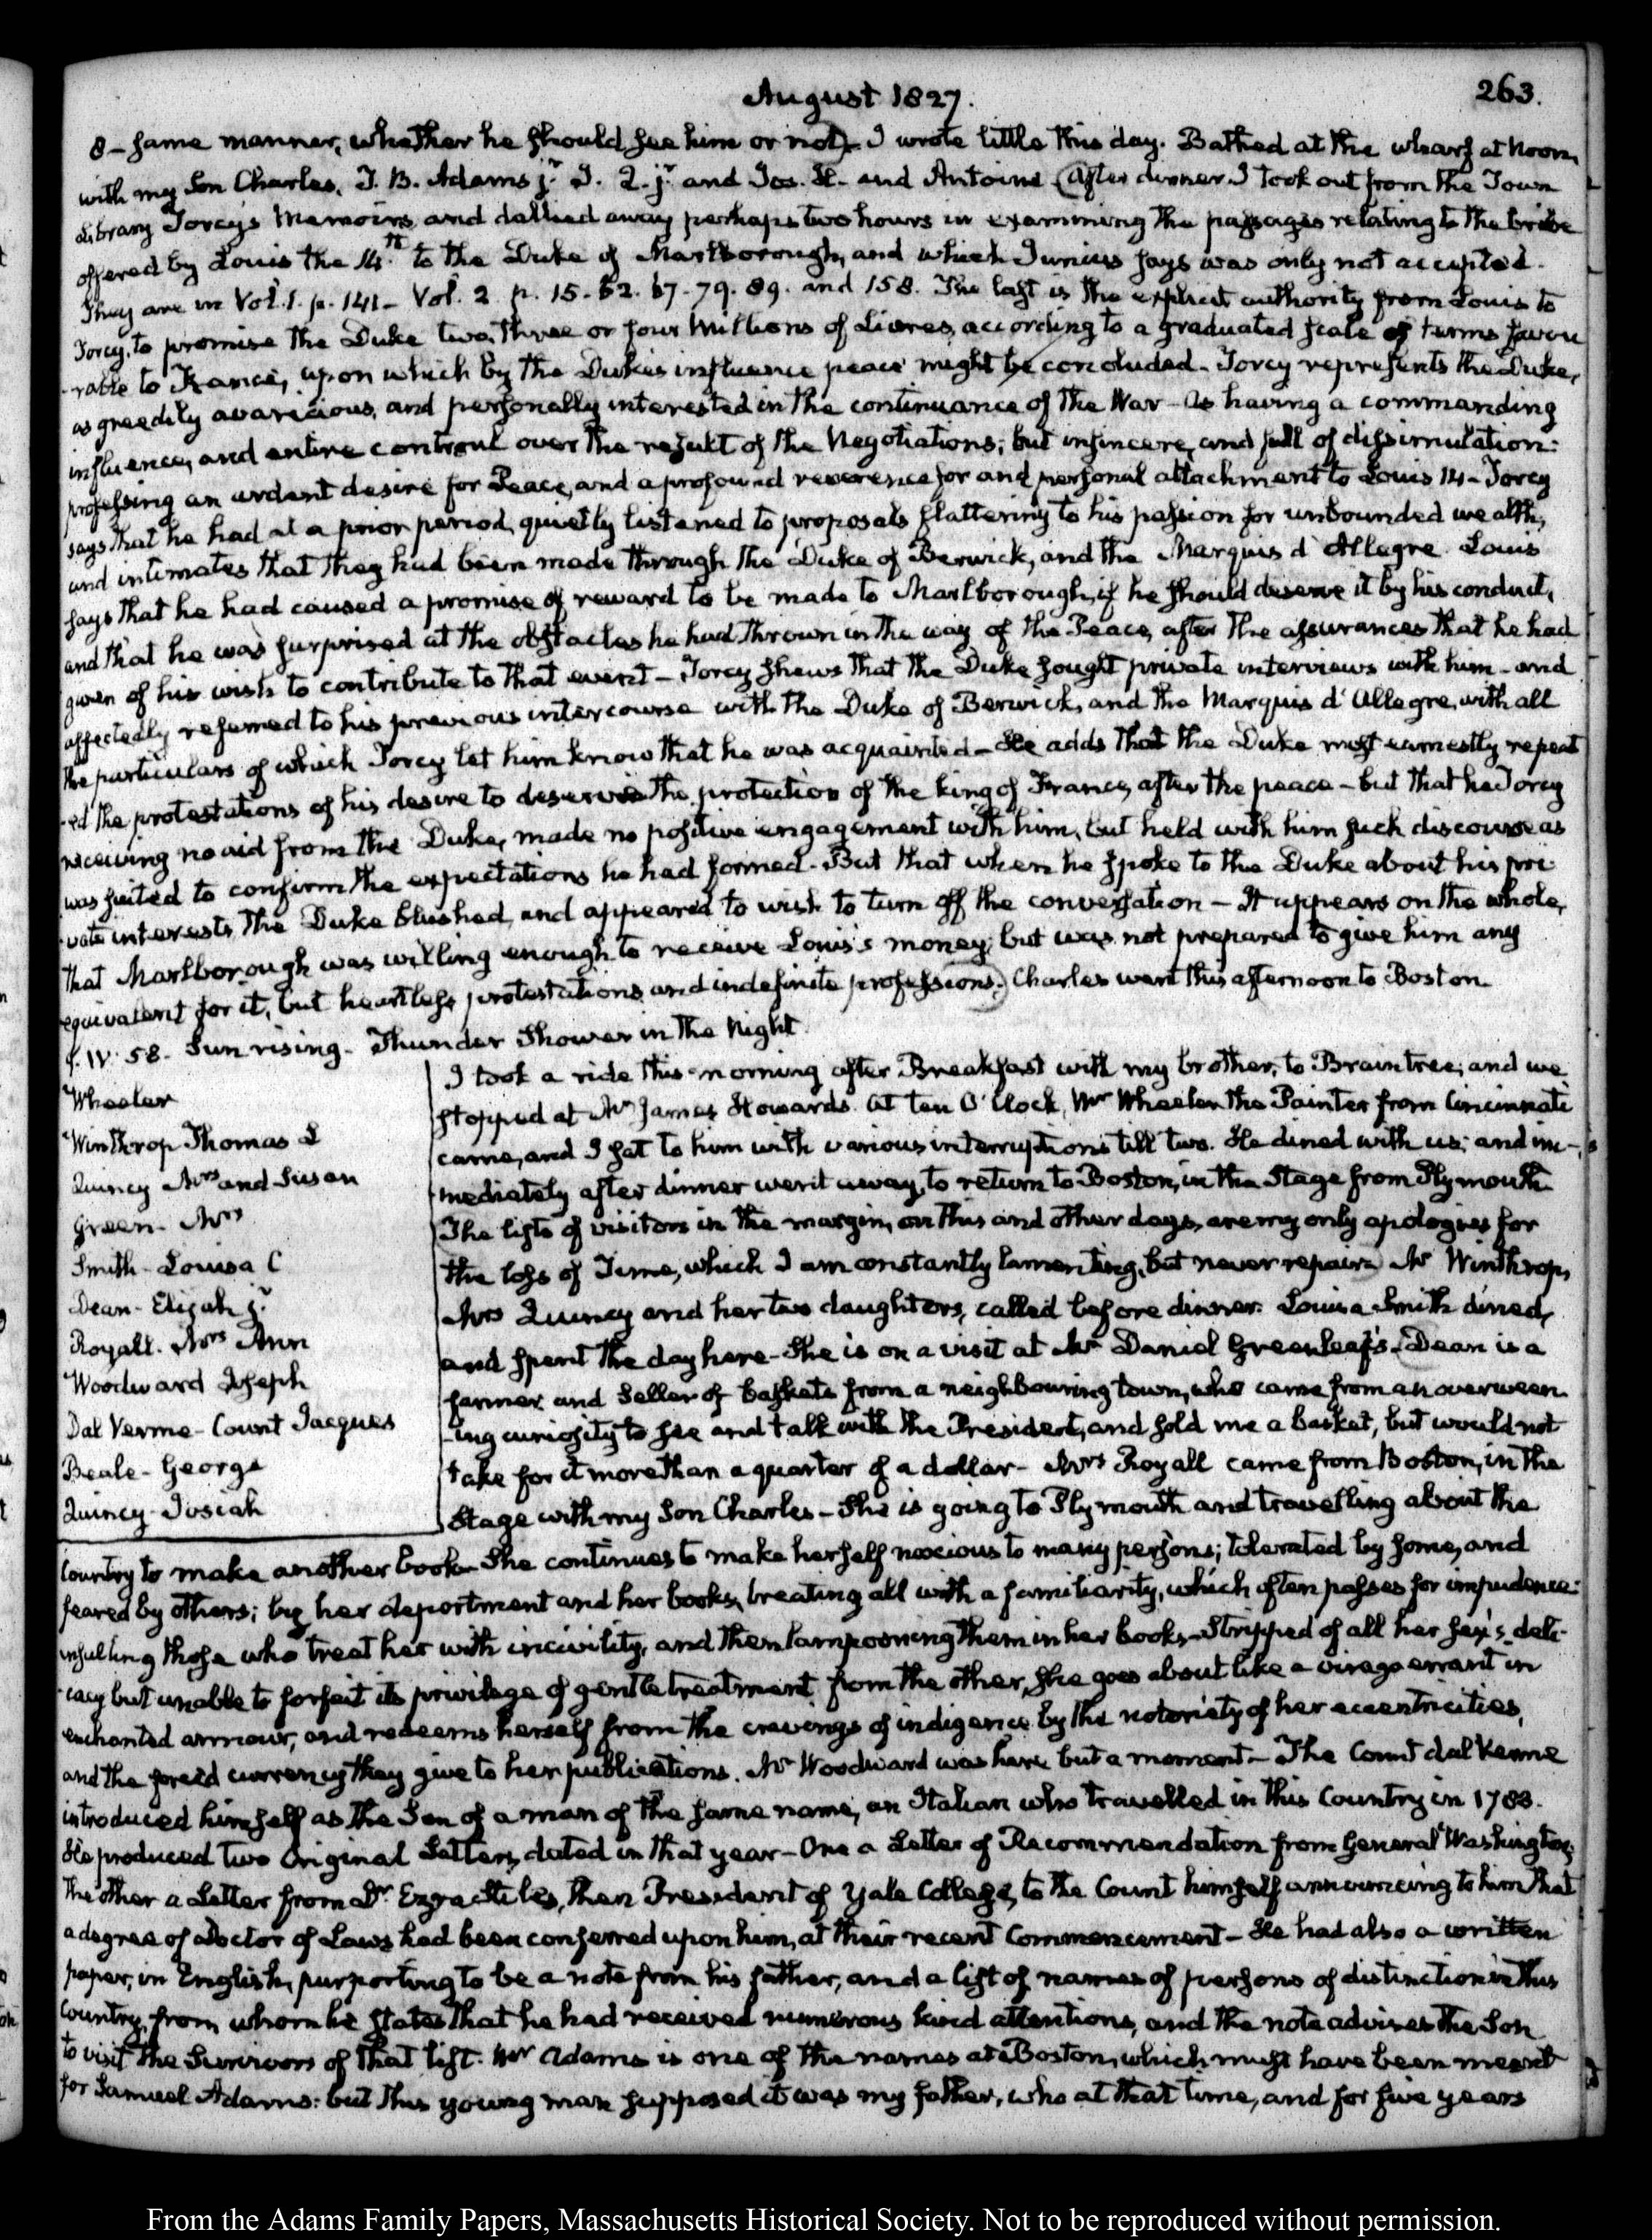 August 1827.
263.
8 - same manner, whether he should see him or not. I wrote little this day. Bathed at the wharf at Noon,
with my Son Charles, J. B. Adams jr. J. Q. jr. and Jos. H. and Antoine (After dinner I took out from the Town
Library Torcy's Memoirs, and dallied away perhaps two hours in examining the passages relating to the bribe
offered by Louis the 14th. to the Duke of Marlborough, and which Junius says was only not accepted.
They are in Vol. 1. p. 141 - Vol. 2. p. 15. 62. 67. 79. 89. and 158. The last is the explicit authority from Louis to
Torcy, to promise the Duke two, three or four Millions of Livres, according to a graduated scale of terms favou
-rable to France, upon which by the Duke's influence peace might be concluded - Torcy represents the Duke,
as greedily avaricious, and personally interested in the continuance of the War - as having a commanding
influence, and entire controul over the result of the Negotiations; but insincere, and full of dissimulation:
professing an ardent desire for Peace, and a profound reverence for and personal attachment to Louis 14 - Torcy
says that he had at a prior period, quietly listened to proposals flattering to his passion for unbounded wealth,
and intimates that they had been made through the Duke of Berwick, and the Marquis d'Allegre. Louis
says that he had caused a promise of reward to be made to Marlborough, if he should deserve it by his conduct,
and that he was surprised at the obstacles he had thrown in the way of the Peace, after the assurances that he had
given of his wish to contribute to that event - Torcy shews that the Duke sought private interviews with him - and
affectedly referred to his previous intercourse with the Duke of Berwick, and the Marquis d'Allegre, with all
the particulars of which Torcy let him know that he was acquainted - He adds that the Duke most earnestly repeat
-ed the protestations of his desire to deserve the protection of the king of France, after the peace - but that he Torcy
receiving no aid from the Duke, made no positive engagement with him, but held with him such discourse as
was suited to confirm the expectations he had formed - But that when he spoke to the Duke about his pri
-vate interests, the Duke blushed, and appeared to wish to turn off the conversation - It appears on the whole,
that Marlborough was willing enough to receive Louis's money; but was not prepared to give him any
equivalent for it, but heartless protestations and indefinite professions.) Charles went this afternoon to Boston.
9. IV: 58. Sun rising - Thunder Shower in the Night.
Wheeler
Winthrop Thomas L
Quincy Mrs and Susan
Green - Mrs
Smith - Louisa C
Dean - Elijah jr.
Royall. Mrs Ann
Woodward Joseph
Dal Verme - Count Jacques
Beale - George
Quincy - Josiah
I took a ride this morning after Breakfast with my brother, to Braintree; and we
stopped at Mr James Howards. At ten O'Clock, Mr Wheeler the Painter from Cincinnati
came, and I sat to him with various interruptions till two. He dined with us; and im-
mediately after dinner went away, to return to Boston, in the Stage from Plymouth.
The lists of visitors in the margin, on this and other days, are my only apologies for
the loss of Time, which I am constantly lamenting, but never repair. Mr Winthrop,
Mrs Quincy and her two daughters, called before dinner. Louisa Smith dined,
and spent the day here - She is on a visit at Mr Daniel Greenleaf's. Dean is a
farmer and Seller of baskets from a neighbouring town, who came from an overween
-ing curiosity to see and talk with the President, and sold me a basket, but would not
take for it more than a quarter of a dollar - Mrs Royall came from Boston, in the
Stage with my Son Charles - She is going to Plymouth and travelling about the
Country to make another book - She continues to make herself noxious to many persons; tolerated by some, and
feared by others; by her deportment and her books, treating all with a familiarity, which often passes for impudence:
insulting those who treat her with incivility, and then lampooning them in her books - Stripped of all her sex's deli-
cacy but unable to forfeit its privilege of gentle treatment from the other, she goes about like a virago errant in
enchanted armour, and redeems herself from the cravings of indigence by the notoriety of her eccentricities,
and the forced currency they give to her publications. Mr Woodward was here but a moment - The Count dal Verme
introduced himself as the Son of a man of the same name, an Italian who travelled in this Country in 1783.
He produced two original Letters, dated in that year - One a Letter of Recommendation from General Washington;
the other a Letter from Dr. Ezra Stiles, then President of Yale College, to the Count himself announcing to him that
a degree of Doctor of Laws had been conferred upon him, at their recent Commencement - He had also a written
paper, in English, purporting to be a note from his father, and a list of names of persons of distinction in this
Country, from whom he states that he had received numerous kind attentions, and the note advises the Son
to visit the Survivors of that list. Mr Adams is one of the names at Boston, which must have been meant
for Samuel Adams: but this young man supposed it was my father, who at that time, and for five years
From the Adams Family Papers, Massachusetts Historical Society. Not to be reproduced without permission.